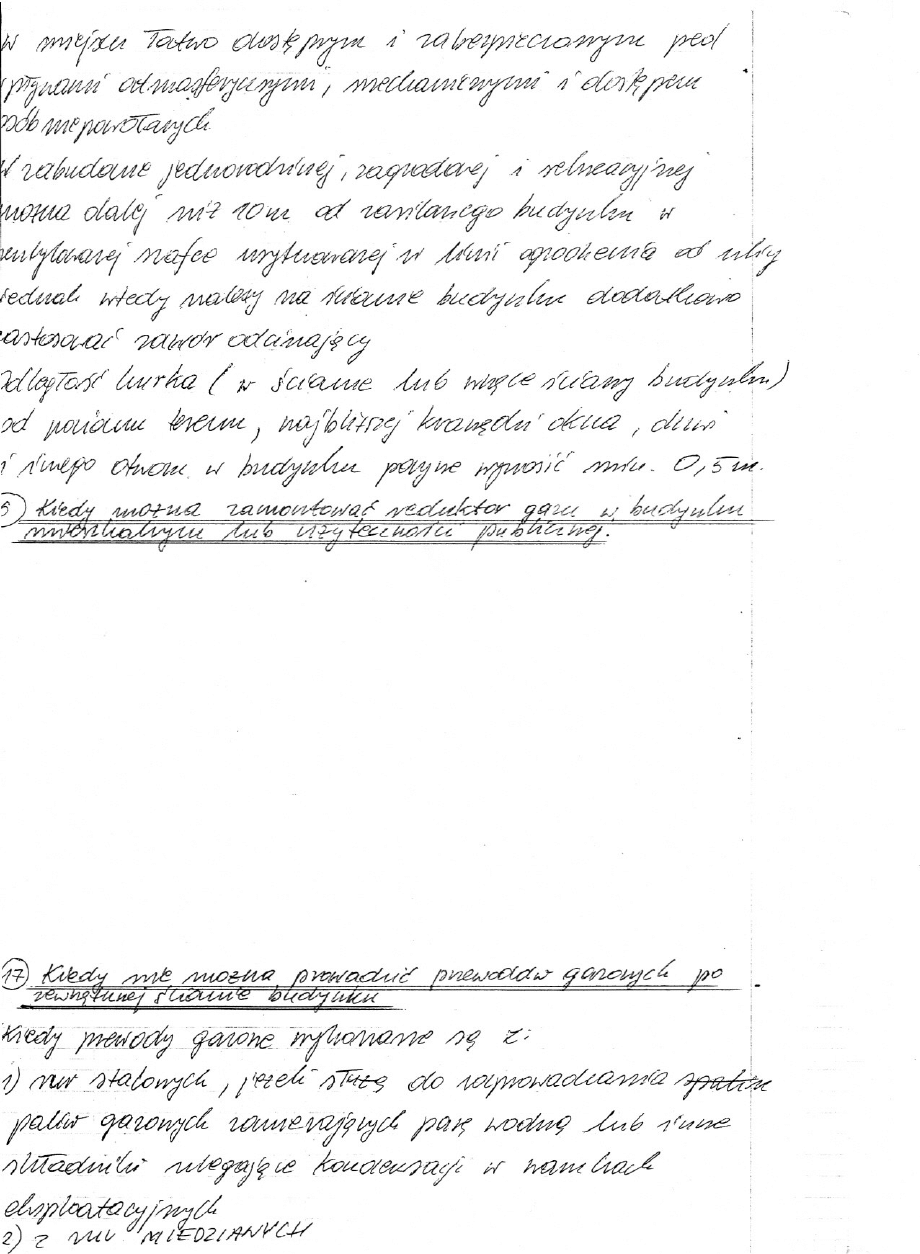 w miejscu łatwo dostępnym i zabezpieczonym pod
wpływami atmosferycznymi, mechanicznymi i dostępem
osób niepowołanych
W zabudowie jednorodzinnej, zagrodowej i rekreacyjnej
można dalej niż 10m od zasilanego budynku w
wentylowanej szafce usytuowanej w linii ogrodzenia od ulicy
jednak wtedy należy na ścianie budynku dodatkowo
zastosować zawór odcinający
Odległość kurka (w ścianie lub wnęce ściany budynku)
od poziomu terenu, najbliższej krawędzi okna, drzwi
i innego otworu w budynku powinna wynosić min. 0,5m.
5) Kiedy można zamontować reduktor gazu w budynku
mieszkalnym lub użyteczności publicznej.
17) Kiedy nie można prowadzić przewodów gazowych po
zewnętrznej ścianie budynku
Kiedy przewody gazowe wykonane są z:
1) rur stalowych, jeżeli służą do rozprowadzania
paliw gazowych zawierających parę wodną lub inne
składniki ulegające kondensacji w warunkach
eksploatacyjnych
2) z rur MIEDZIANYCH